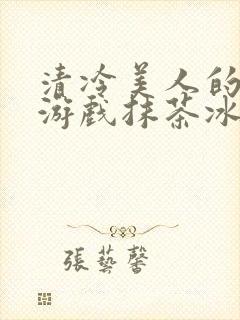 清冷美人的
游戏抹茶冰
張藝馨